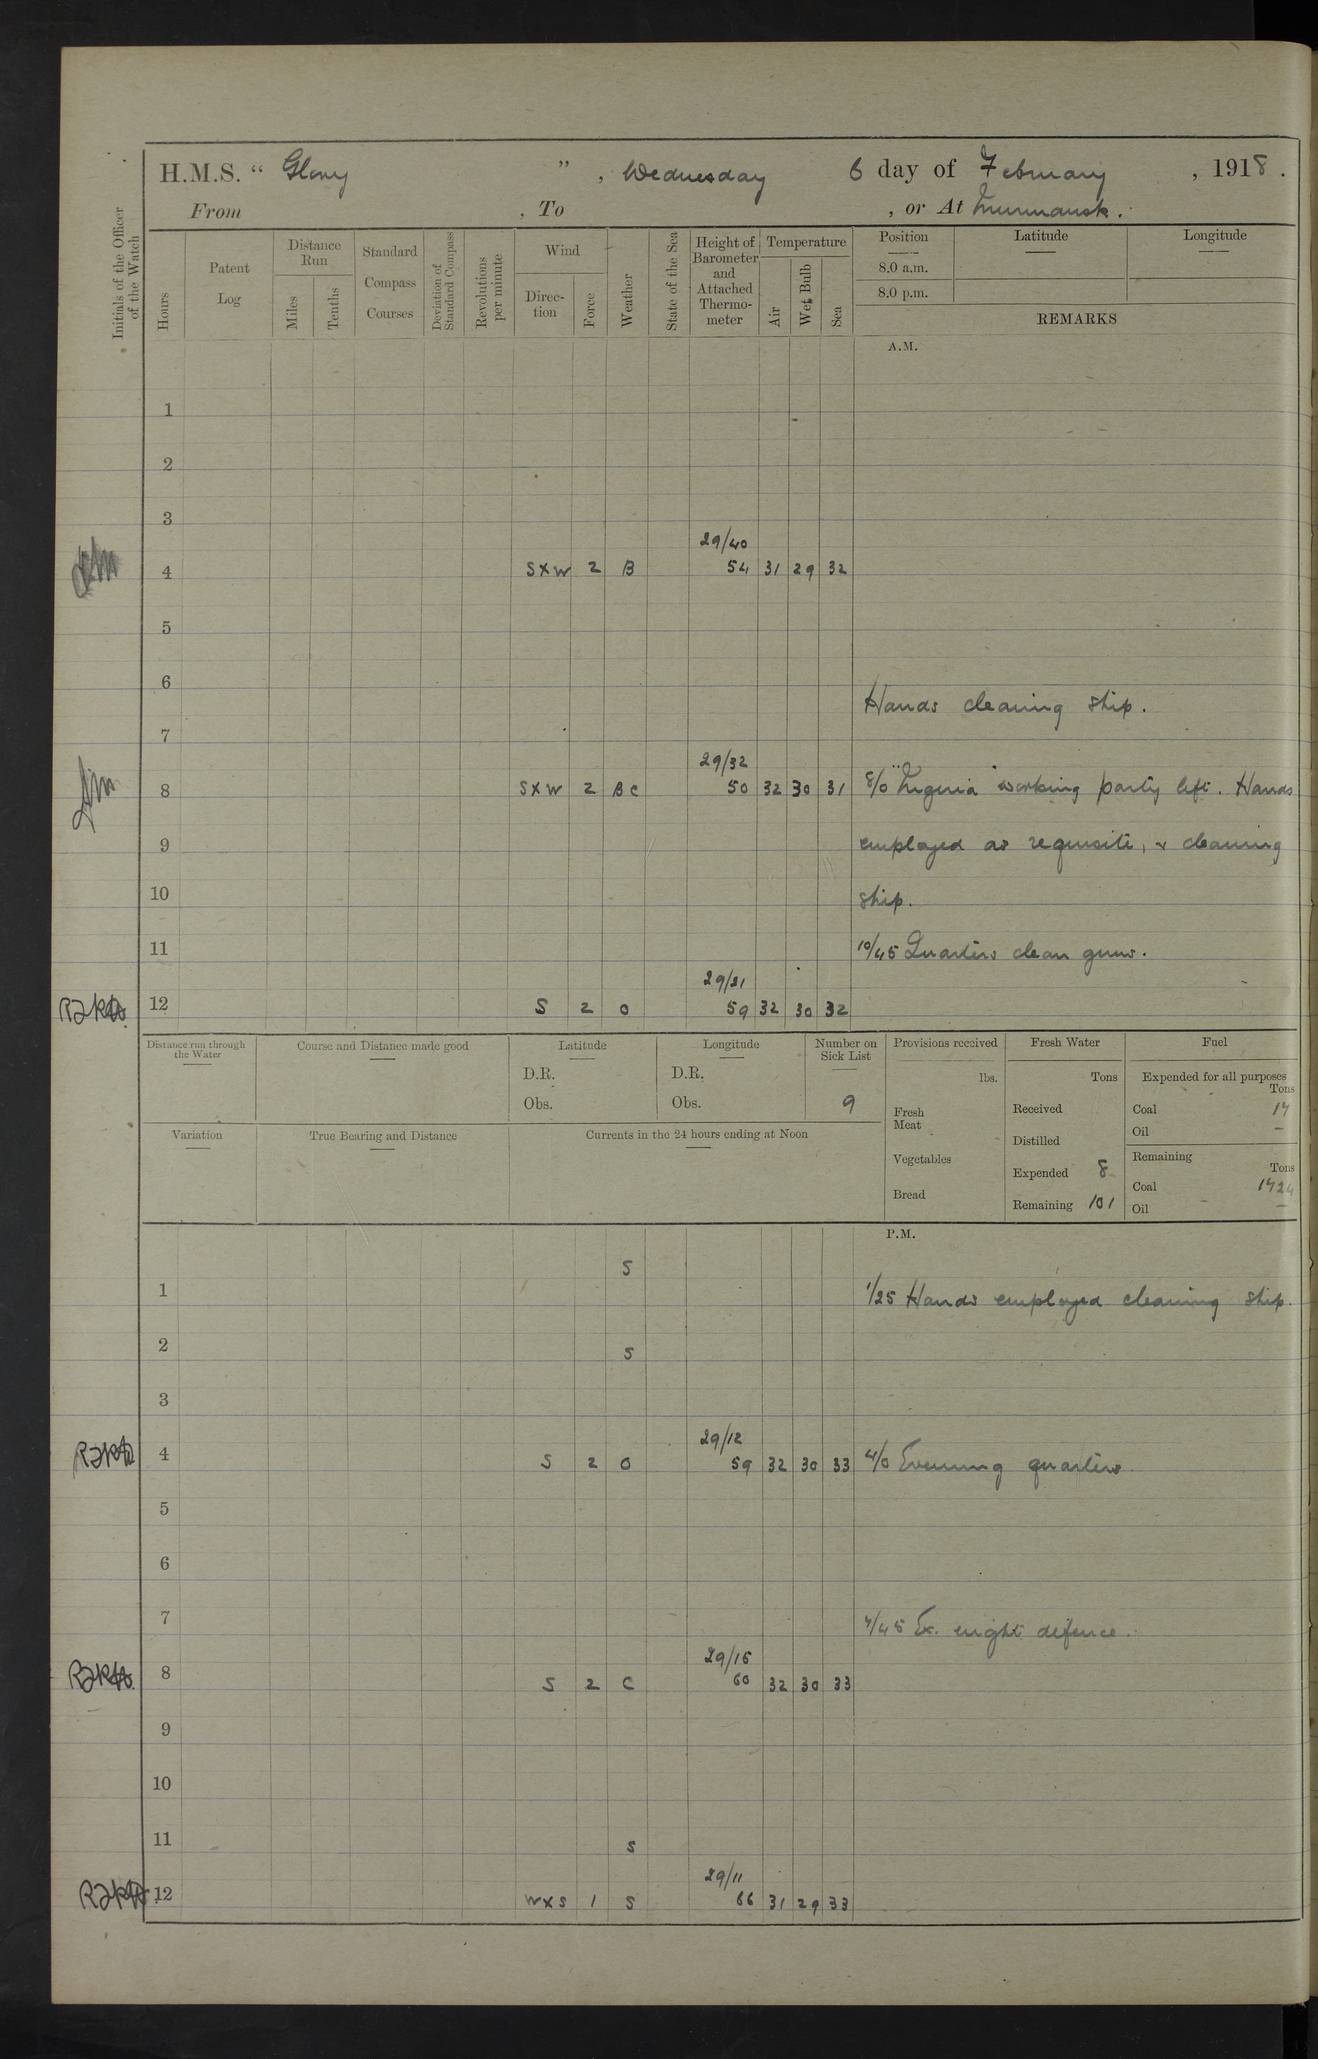 H.M.S. “ Glory ” , Wednesday 6 day of February , 1918 .
From , To , or At Murmansk .
Initials of the Officer of the Watch
Hours
Patent Log
Distance Run
Miles
Tenths
Standard Compass Courses
Deviation of Standard Compass
Revolutions per minute
Wind
Direc- tion
Force
Weather
State of the Sea
Height of Barometer and Attached Thermo- meter
Temperature
Air
Wet Bulb
Sea
Position
8.0 a.m.
8.0 p.m.
Latitude
Longitude
REMARKS
A.M.
1
2
3
29/40
4 S X W 2 B 54 31 29 32
5
6
Hands cleaning ship.
7
29/32
8 S X W 2 B C 50 32 30 31 8/0 working party left. Hands
9 employed as requisite, & cleaning
10 ship.
11 10/45 Quarters clean guns.
29/21
12 S 2 O 59 32 30 32
Distance run through the Water
Course and Distance made good
Latitude
D.R.
Obs.
Longitude
D.R.
Obs.
Number on Sick List
9
Variation
True Bearing and Distance
Currents in the 24 hours ending at Noon
Provisions received
lbs.
Fresh Meat
Vegetables
Bread
Fresh Water
Tons
Received
Distilled
Expended 8
Remaining 101
Fuel
Expended for all purposes
Tons
Coal 17
Oil –
Remaining
Tons
Coal 1724
Oil –
P.M.
S
1 1/25 Hands employed cleaning ship.
2 S
3
29/12
4 S 2 O 59 32 30 33 4/0 Evening quarters.
5
6
7 7/45 Ex. night defence.
29/16
8 S 2 C 60 32 30 33
9
10
11 S
29/11
12 W X S 1 S 66 31 29 33